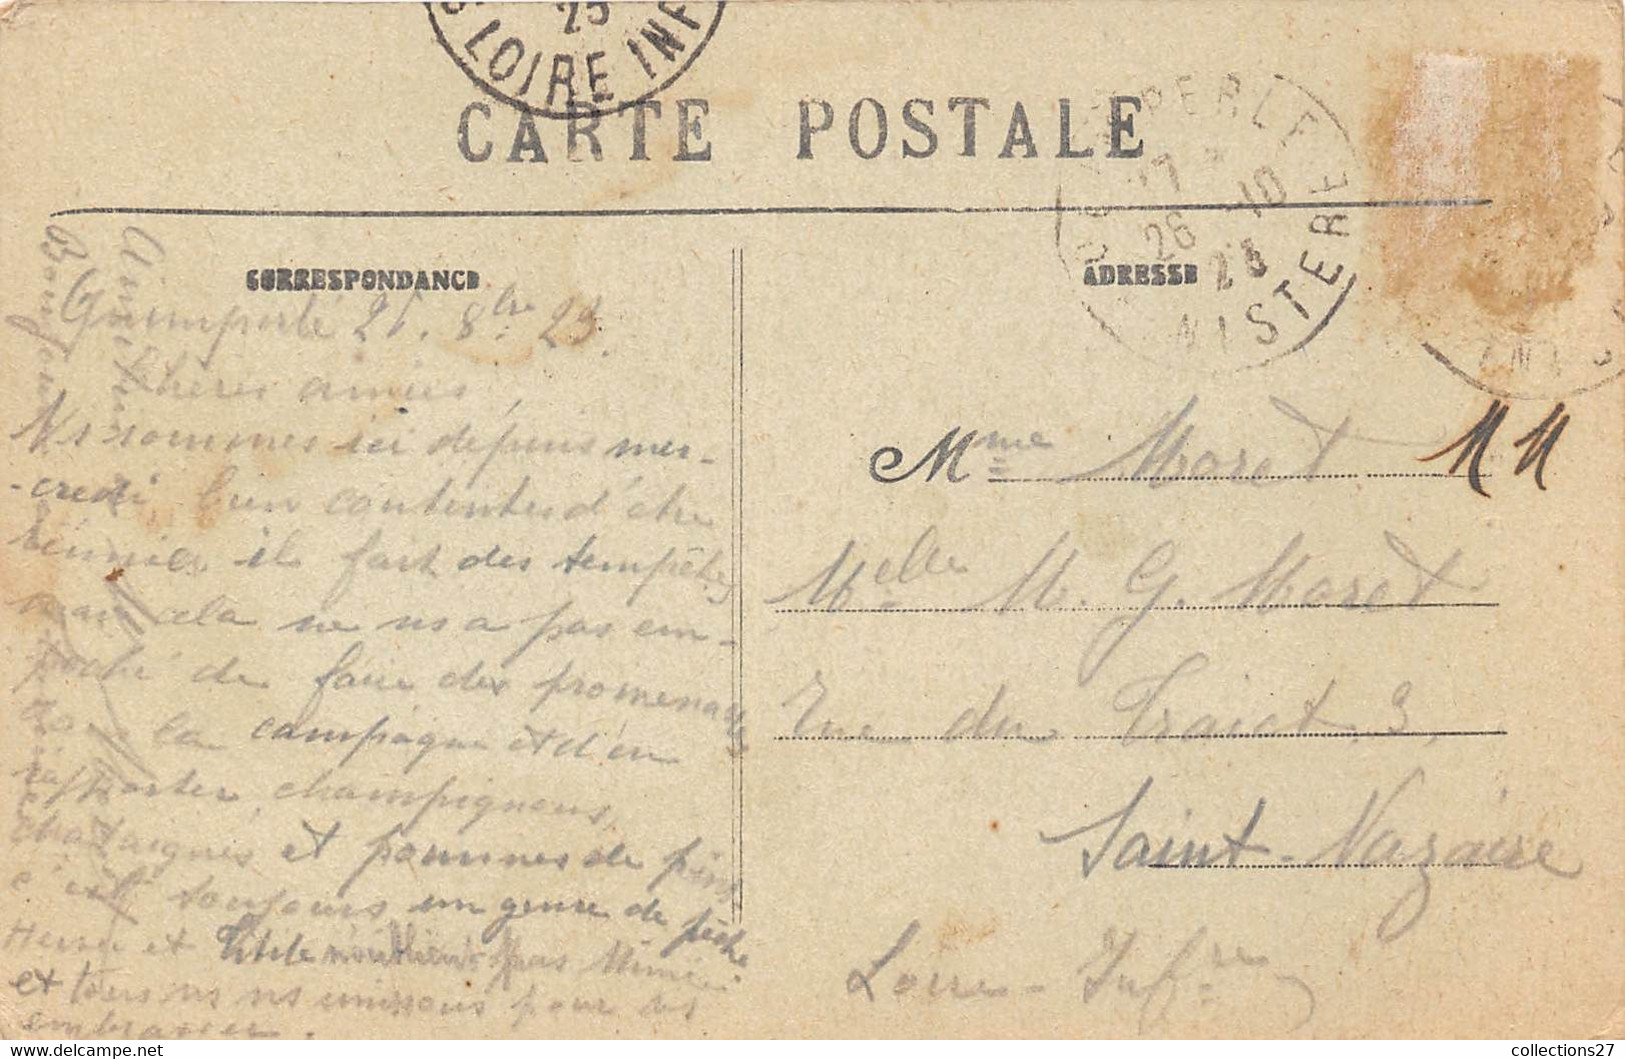 LOIRE INF
CARTE POSTALE
QUIMPERLE
17
26 -10
23
FINISTERE
CORRESPONDANCE
ADRESSE
Quimperlé 25. 8bre 23.
Chères amies,
Ns sommes ici depuis mer-
-credi, bien contentes d'être
réunies il fait des tempêtes
mais cela ne ns a pas em-
pêché de faire des promenades
la campagne et d'en
rapporter champignons,
chataignes et pommes de pins
c'est toujours un genre de pêche
et Titile n'oublient pas Mimi
et tous ns ns unissons pour vs
embrasser.
Bonjour
Mme Moret
Melle M. G. Moret
Rue du Traict 3,
Saint-Nazaire
Loire-Infre
collections27